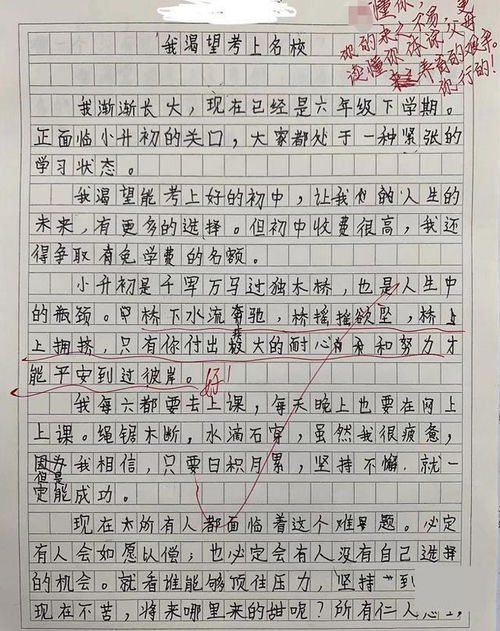 懂你,
你的来之不易,父母
读懂你,体谅父母
养育的艰辛。
你行的!
我渴望考上名校
我渐渐长大,现在已经是六年级下学期。
正面临小升初的关口,大家都处于一种紧张的
学习状态。
我渴望能考上好的初中,让我们的人生的
未来,有更多的选择。但初中收费很高,我还
得争取有免学费的名额。
小升初是千军万马过独木桥,也是人生中
的瓶颈。桥下水流奔驰,桥摇摇欲坠,桥上
上拥挤,只有你付出极大的耐心和努力才
能平安到过彼岸。好!
我每六都要去上课,每天晚上也要在网上
上课。绳锯木断,水滴石穿,虽然我很疲惫,
但是我相信,只要日积月累,坚持不懈,就一
定能成功。
现在大所有人都面临着这个难题。必定
有人会如愿以偿;也必定会有人没有自己选择
的机会。就看谁能够顶住压力,坚持到
现在不苦,将来哪里来的甜呢?所有仁人志士,